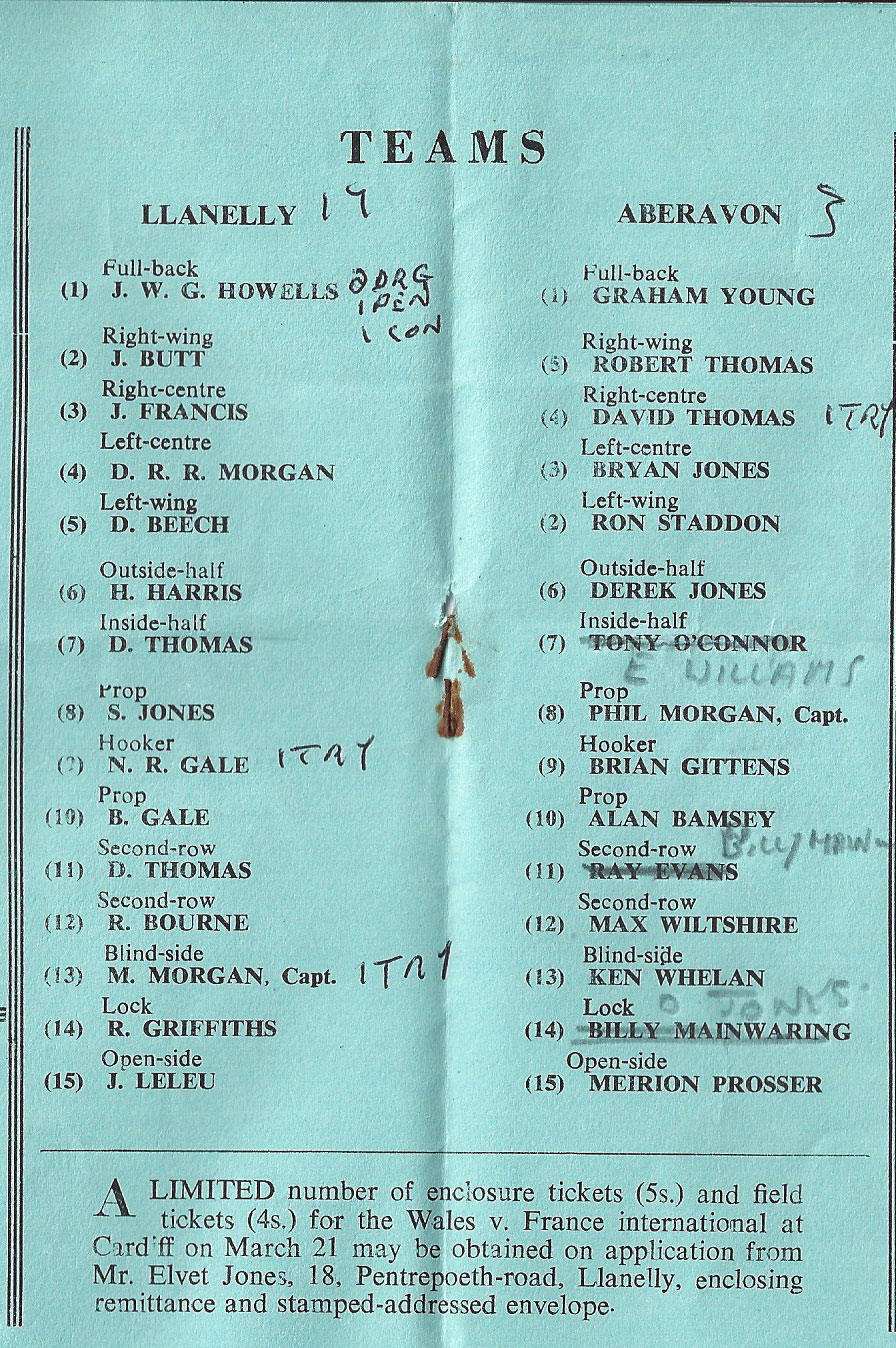 TEAMS
LLANELLY 17
Full-back
(1) J. W. G. HOWELLS 2 DRG
1 PEN
1 CON
Right-wing
(2) J. BUTT
Right-centre
(3) J. FRANCIS
Left-centre
(4) D. R. R. MORGAN
Left-wing
(5) D. BEECH
Outside-half
(6) H. HARRIS
Inside-half
(7) D. THOMAS
Prop
(8) S. JONES
Hooker
(9) N. R. GALE 1 TRY
Prop
(10) B. GALE
Second-row
(11) D. THOMAS
Second-row
(12) R. BOURNE
Blind-side
(13) M. MORGAN, Capt. 1 TRY
Lock
(14) R. GRIFFITHS
Open-side
(15) J. LELEU
ABERAVON 3
Full-back
(1) GRAHAM YOUNG
Right-wing
(5) ROBERT THOMAS
Right-centre
(4) DAVID THOMAS 1 TRY
Left-centre
(3) BRYAN JONES
Left-wing
(2) RON STADDON
Outside-half
(6) DEREK JONES
Inside-half
(7) TONY O'CONNOR
E WILLIAMS
Prop
(8) PHIL MORGAN, Capt.
Hooker
(9) BRIAN GITTENS
Prop
(10) ALAN BAMSEY
Second-row BILLY
(11) RAY EVANS
Second-row
(12) MAX WILTSHIRE
Blind-side
(13) KEN WHELAN
Lock O JONES
(14) BILLY MAINWARING
Open-side
(15) MEIRION PROSSER
A LIMITED number of enclosure tickets (5s.) and field
tickets (4s.) for the Wales v. France international at
Cardiff on March 21 may be obtained on application from
Mr. Elvet Jones, 18, Pentrepoeth-road, Llanelly, enclosing
remittance and stamped-addressed envelope.